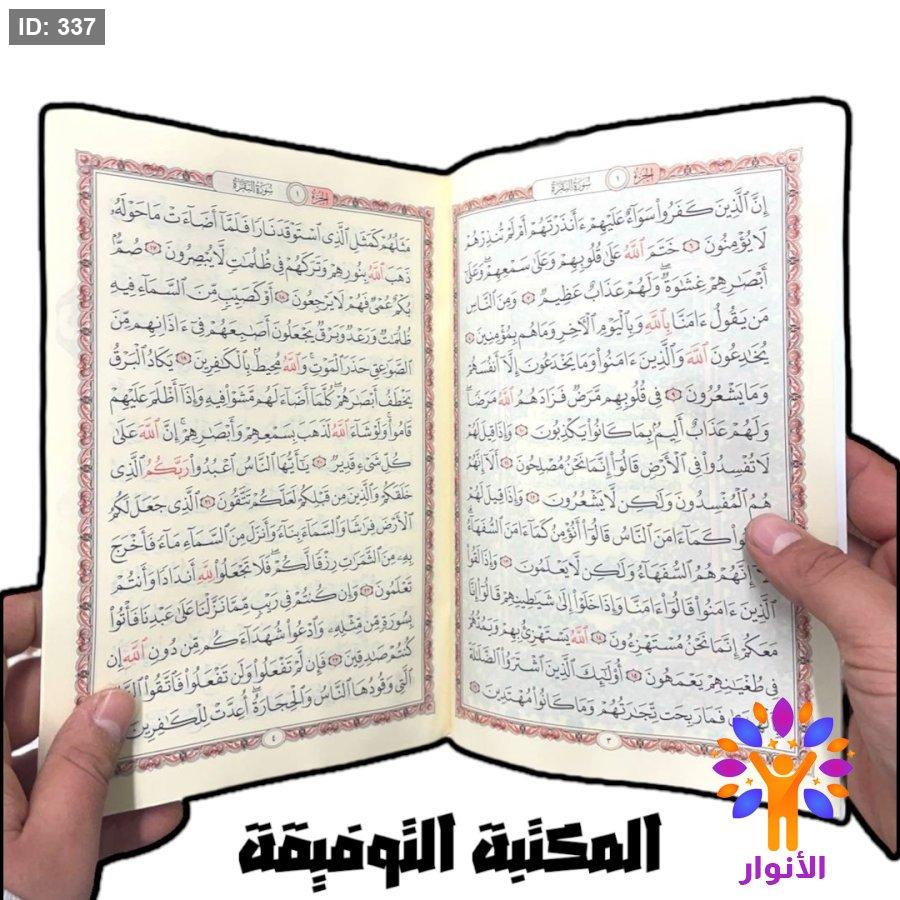 ID: 337
الجزء ١ سورة البقرة
إِنَّ ٱلَّذِينَ كَفَرُوا۟ سَوَآءٌ عَلَيْهِمْ ءَأَنذَرْتَهُمْ أَمْ لَمْ تُنذِرْهُمْ
لَا يُؤْمِنُونَ ٦ خَتَمَ ٱللَّهُ عَلَىٰ قُلُوبِهِمْ وَعَلَىٰ سَمْعِهِمْ ۖ وَعَلَىٰٓ
أَبْصَٰرِهِمْ غِشَٰوَةٌ ۖ وَلَهُمْ عَذَابٌ عَظِيمٌ ٧ وَمِنَ ٱلنَّاسِ
مَن يَقُولُ ءَامَنَّا بِٱللَّهِ وَبِٱلْيَوْمِ ٱلْـَٔاخِرِ وَمَا هُم بِمُؤْمِنِينَ ٨
يُخَٰدِعُونَ ٱللَّهَ وَٱلَّذِينَ ءَامَنُوا۟ وَمَا يَخْدَعُونَ إِلَّآ أَنفُسَهُمْ
وَمَا يَشْعُرُونَ ٩ فِى قُلُوبِهِم مَّرَضٌ فَزَادَهُمُ ٱللَّهُ مَرَضًا ۖ
وَلَهُمْ عَذَابٌ أَلِيمٌۢ بِمَا كَانُوا۟ يَكْذِبُونَ ١٠ وَإِذَا قِيلَ لَهُمْ
لَا تُفْسِدُوا۟ فِى ٱلْأَرْضِ قَالُوٓا۟ إِنَّمَا نَحْنُ مُصْلِحُونَ ١١ أَلَآ إِنَّهُمْ
هُمُ ٱلْمُفْسِدُونَ وَلَٰكِن لَّا يَشْعُرُونَ ١٢ وَإِذَا قِيلَ لَهُمْ
كَمَآ ءَامَنَ ٱلنَّاسُ قَالُوٓا۟ أَنُؤْمِنُ كَمَآ ءَامَنَ ٱلسُّفَهَآءُ ۗ
إِنَّهُمْ هُمُ ٱلسُّفَهَآءُ وَلَٰكِن لَّا يَعْلَمُونَ ١٣ وَإِذَا لَقُوا۟
ٱلَّذِينَ ءَامَنُوا۟ قَالُوٓا۟ ءَامَنَّا وَإِذَا خَلَوْا۟ إِلَىٰ شَيَٰطِينِهِمْ قَالُوٓا۟ إِنَّا
مَعَكُمْ إِنَّمَا نَحْنُ مُسْتَهْزِءُونَ ١٤ ٱللَّهُ يَسْتَهْزِئُ بِهِمْ وَيَمُدُّهُمْ
فِى طُغْيَٰنِهِمْ يَعْمَهُونَ ١٥ أُو۟لَٰٓئِكَ ٱلَّذِينَ ٱشْتَرَوُا۟ ٱلضَّلَٰلَةَ
فَمَا رَبِحَت تِّجَٰرَتُهُمْ وَمَا كَانُوا۟ مُهْتَدِينَ ١٦
٣
الجزء ١ سورة البقرة
مَثَلُهُمْ كَمَثَلِ ٱلَّذِى ٱسْتَوْقَدَ نَارًا فَلَمَّآ أَضَآءَتْ مَا حَوْلَهُۥ
ذَهَبَ ٱللَّهُ بِنُورِهِمْ وَتَرَكَهُمْ فِى ظُلُمَٰتٍ لَّا يُبْصِرُونَ ١٧ صُمٌّۢ
بُكْمٌ عُمْىٌ فَهُمْ لَا يَرْجِعُونَ ١٨ أَوْ كَصَيِّبٍ مِّنَ ٱلسَّمَآءِ فِيهِ
ظُلُمَٰتٌ وَرَعْدٌ وَبَرْقٌ يَجْعَلُونَ أَصَٰبِعَهُمْ فِىٓ ءَاذَانِهِم مِّنَ
ٱلصَّوَٰعِقِ حَذَرَ ٱلْمَوْتِ ۚ وَٱللَّهُ مُحِيطٌۢ بِٱلْكَٰفِرِينَ ١٩ يَكَادُ ٱلْبَرْقُ
يَخْطَفُ أَبْصَٰرَهُمْ ۖ كُلَّمَآ أَضَآءَ لَهُم مَّشَوْا۟ فِيهِ وَإِذَآ أَظْلَمَ عَلَيْهِمْ
قَامُوا۟ ۚ وَلَوْ شَآءَ ٱللَّهُ لَذَهَبَ بِسَمْعِهِمْ وَأَبْصَٰرِهِمْ ۚ إِنَّ ٱللَّهَ عَلَىٰ
كُلِّ شَىْءٍ قَدِيرٌ ٢٠ يَٰٓأَيُّهَا ٱلنَّاسُ ٱعْبُدُوا۟ رَبَّكُمُ ٱلَّذِى
خَلَقَكُمْ وَٱلَّذِينَ مِن قَبْلِكُمْ لَعَلَّكُمْ تَتَّقُونَ ٢١ ٱلَّذِى جَعَلَ لَكُمُ
ٱلْأَرْضَ فِرَٰشًا وَٱلسَّمَآءَ بِنَآءً وَأَنزَلَ مِنَ ٱلسَّمَآءِ مَآءً فَأَخْرَجَ
بِهِۦ مِنَ ٱلثَّمَرَٰتِ رِزْقًا لَّكُمْ ۖ فَلَا تَجْعَلُوا۟ لِلَّهِ أَندَادًا وَأَنتُمْ
تَعْلَمُونَ ٢٢ وَإِن كُنتُمْ فِى رَيْبٍ مِّمَّا نَزَّلْنَا عَلَىٰ عَبْدِنَا فَأْتُوا۟
بِسُورَةٍ مِّن مِّثْلِهِۦ وَٱدْعُوا۟ شُهَدَآءَكُم مِّن دُونِ ٱللَّهِ إِن
كُنتُمْ صَٰدِقِينَ ٢٣ فَإِن لَّمْ تَفْعَلُوا۟ وَلَن تَفْعَلُوا۟ فَٱتَّقُوا۟
ٱلَّتِى وَقُودُهَا ٱلنَّاسُ وَٱلْحِجَارَةُ ۖ أُعِدَّتْ لِلْكَٰفِرِينَ
٤
المكتبة التوفيقة
الأنوار